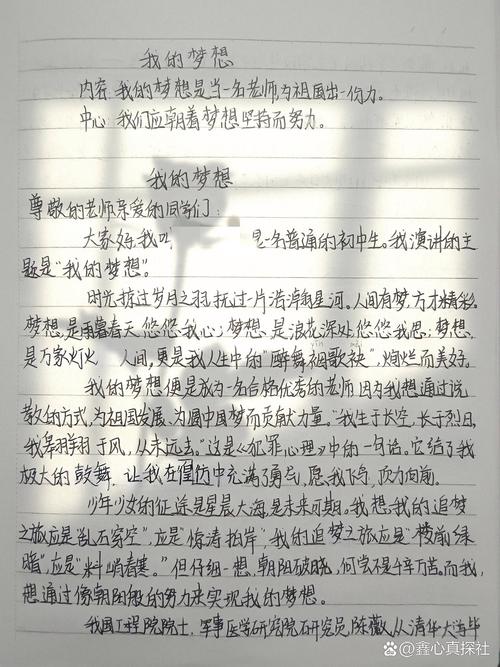 我的梦想
内容:我的梦想是当一名老师为祖国出一份力。
中心:我们应朝着梦想坚持而努力。
我的梦想
尊敬的老师亲爱的同学们:
大家好,我叫 是一名普通的初中生。我演讲的主
题是“我的梦想”。
时光掠过岁月之羽,抚过一片浩淖星河。人间有梦,方才精彩。
梦想,是雨暮春天,悠悠我心;梦想,是浪花深处,悠悠我思;梦想,
是万家灯火 人间,更是我人生中的“醉舞裀歌袂”,绚烂而美好。
yīn mèi
我的梦想便是成为一名合格优秀的老师,因为我想通过说
教的方式,为祖国发展,为圆中国梦而贡献力量。“我生于长空,长于烈日,
我翱翔于风,从未远去。”这是《犯罪心理》中的一句话。它给了我
极大的鼓舞,让我在彷徨中充满了勇气,愿我 顶力向前。
少年少女的征途是星晨大海,是未来可期。我想:我的追梦
之旅应是“乱石穿空”,应是“惊涛拍岸”,我的追梦之旅应是“楼前绿
暗”应是“料峭春寒。”但仔细一想,朝阳破晓,何尝不是千辛万苦。而我,
想通过像朝阳般的努力来实现我的梦想。
我国工程院院士,军事医学研究院研究员陈薇,从清华大学毕
鑫心真探社